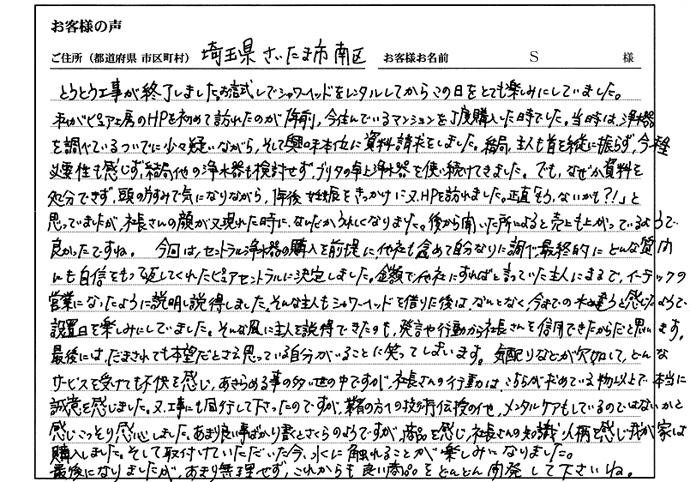 お客様の声
ご住所（都道府県 市区町村） 埼玉県さいたま市南区 お客様お名前 S 様
とうとう工事が終了しました。お試しでシャワーヘッドをレンタルしてからこの日をとても楽しみにしていました。
私がピュア工房のHPを初めて訪れたのが 年前、今住んでいるマンションを丁度購入した時でした。当時は、浄水器
を調べているついでに少々疑いながら、そして興味本位に資料請求をしました。結局、主人も首を縦に振らず、今程
必要性も感じず、結局他の浄水器も検討せず、ブリタの卓上浄水器を使い続けてきました。でも、なぜか資料を
処分できず、頭の片すみで気になりながら、 年後妊娠をきっかけに又、HPを訪れました。正直「もう、ないかも?!」と
思っていましたが、社長さんの顔が又現れた時に、なんだかうれしくなりました。後から聞いた所によると売上も上がっているようで
良かったですね。 今回は、セントラル浄水器の購入を前提に他社も含めて自分なりに調べ最終的にどんな質問
にも自信をもって返してくれたピュアセントラルに決定しました。金額で他社にすればと言っていた主人にまるで、イーテックの
営業になったように説明し説得しました。そんな主人もシャワーヘッドを借りた後は、なんとなく、今までの水と違うと感じたようで
設置日を楽しみにしていました。そんな風に主人を説得できたのも、発言や行動から社長さんを信用できたからだと思います。
最後には、だまされても本望だとさえ思っている自分がいることに笑ってしまいます。気配りなどが欠如して、どんな
サービスを受けても不快を感じ、あきらめる事の多い世の中ですが、社長さんの行動は、こちらが求めている物以上で本当に
誠意を感じました。又、工事にも同行して下さったのですが、業者の方への技術伝授の他、メンタルケアもしているのではないかと
感じこっそり感心しました。あまり良い事ばかり書くとさくらのようですが、商品を感じ、社長さんの知識・人柄を感じ我が家は
購入しました。そして取付けていただいた今、水に触れることが楽しみになりました。
最後になりましたが、あまり無理せず、これからも良い商品をどんどん開発して下さいね。